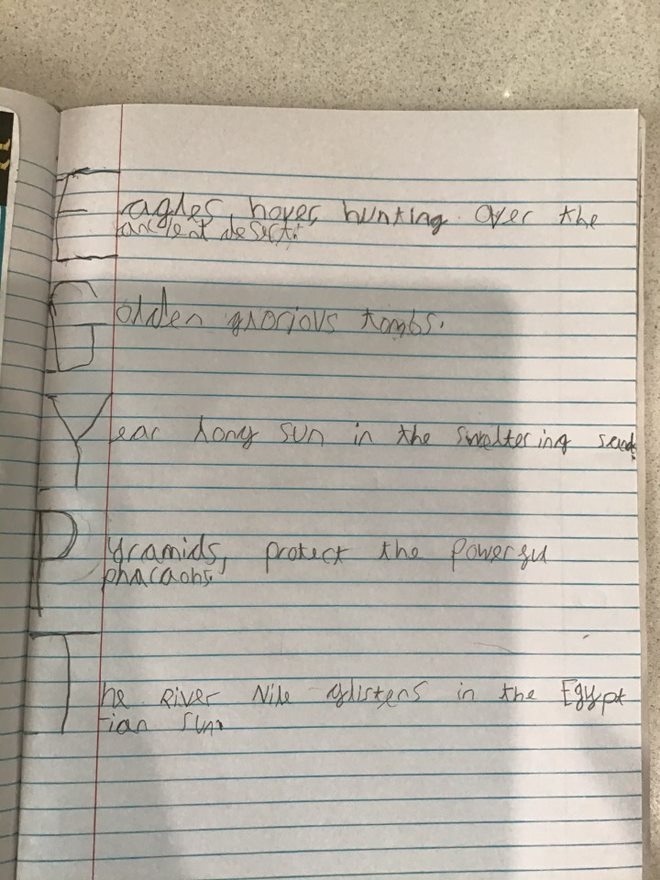 Eagles hover hunting over the
ancient desert.
Golden glorious tombs.
Year long sun in the sweltering sand.
Pyramids, protect the powerful
pharaohs.
The River Nile glistens in the Egypt
ian sun.